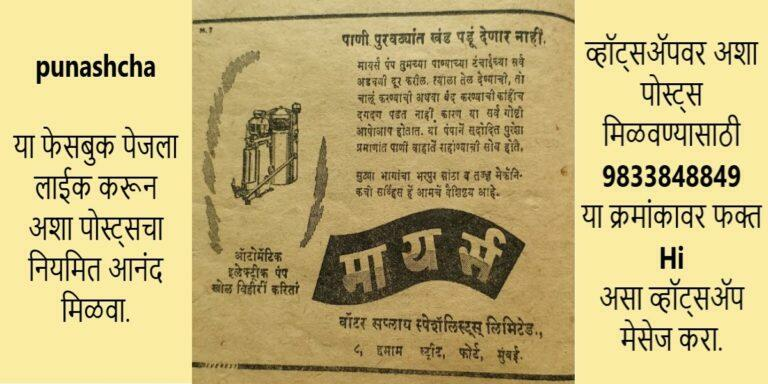 punashcha
या फेसबुक पेजला
लाईक करून
अशा पोस्ट्सचा
नियमित आनंद
मिळवा.
M. 7
पाणी पुरवठ्यांत खंड पडूं देणार नाही.
मायर्स पंप तुमच्या पाण्याच्या टंचाईच्या सर्व
अडचणी दूर करील. त्याला तेल देण्याची, तो
चालूं करण्याची अथवा बंद करण्याची कांहींच
दगदग पडत नाहीं, कारण या सर्व गोष्टी
आपोआप होतात. या पंपानें सदोदित पुरेशा
प्रमाणांत पाणी वाहातें राहाण्याची सोय होते.
सुट्या भागांचा भरपूर सांठा व तज्ज्ञ मेकॅनि-
कची सर्व्हिस हें आमचें वैशिष्ट्य आहे.
ऑटोमॅटिक
इलेक्ट्रीक पंप
खोल विहीरीं करितां
मायर्स
वॉटर सप्लाय स्पेशॅलिस्ट्स् लिमिटेड.,
८, इमाम स्ट्रीट, फोर्ट, मुंबई.
व्हॉट्सॲपवर अशा
पोस्ट्स
मिळवण्यासाठी
9833848849
या क्रमांकावर फक्त
Hi
असा व्हॉट्सॲप
मेसेज करा.